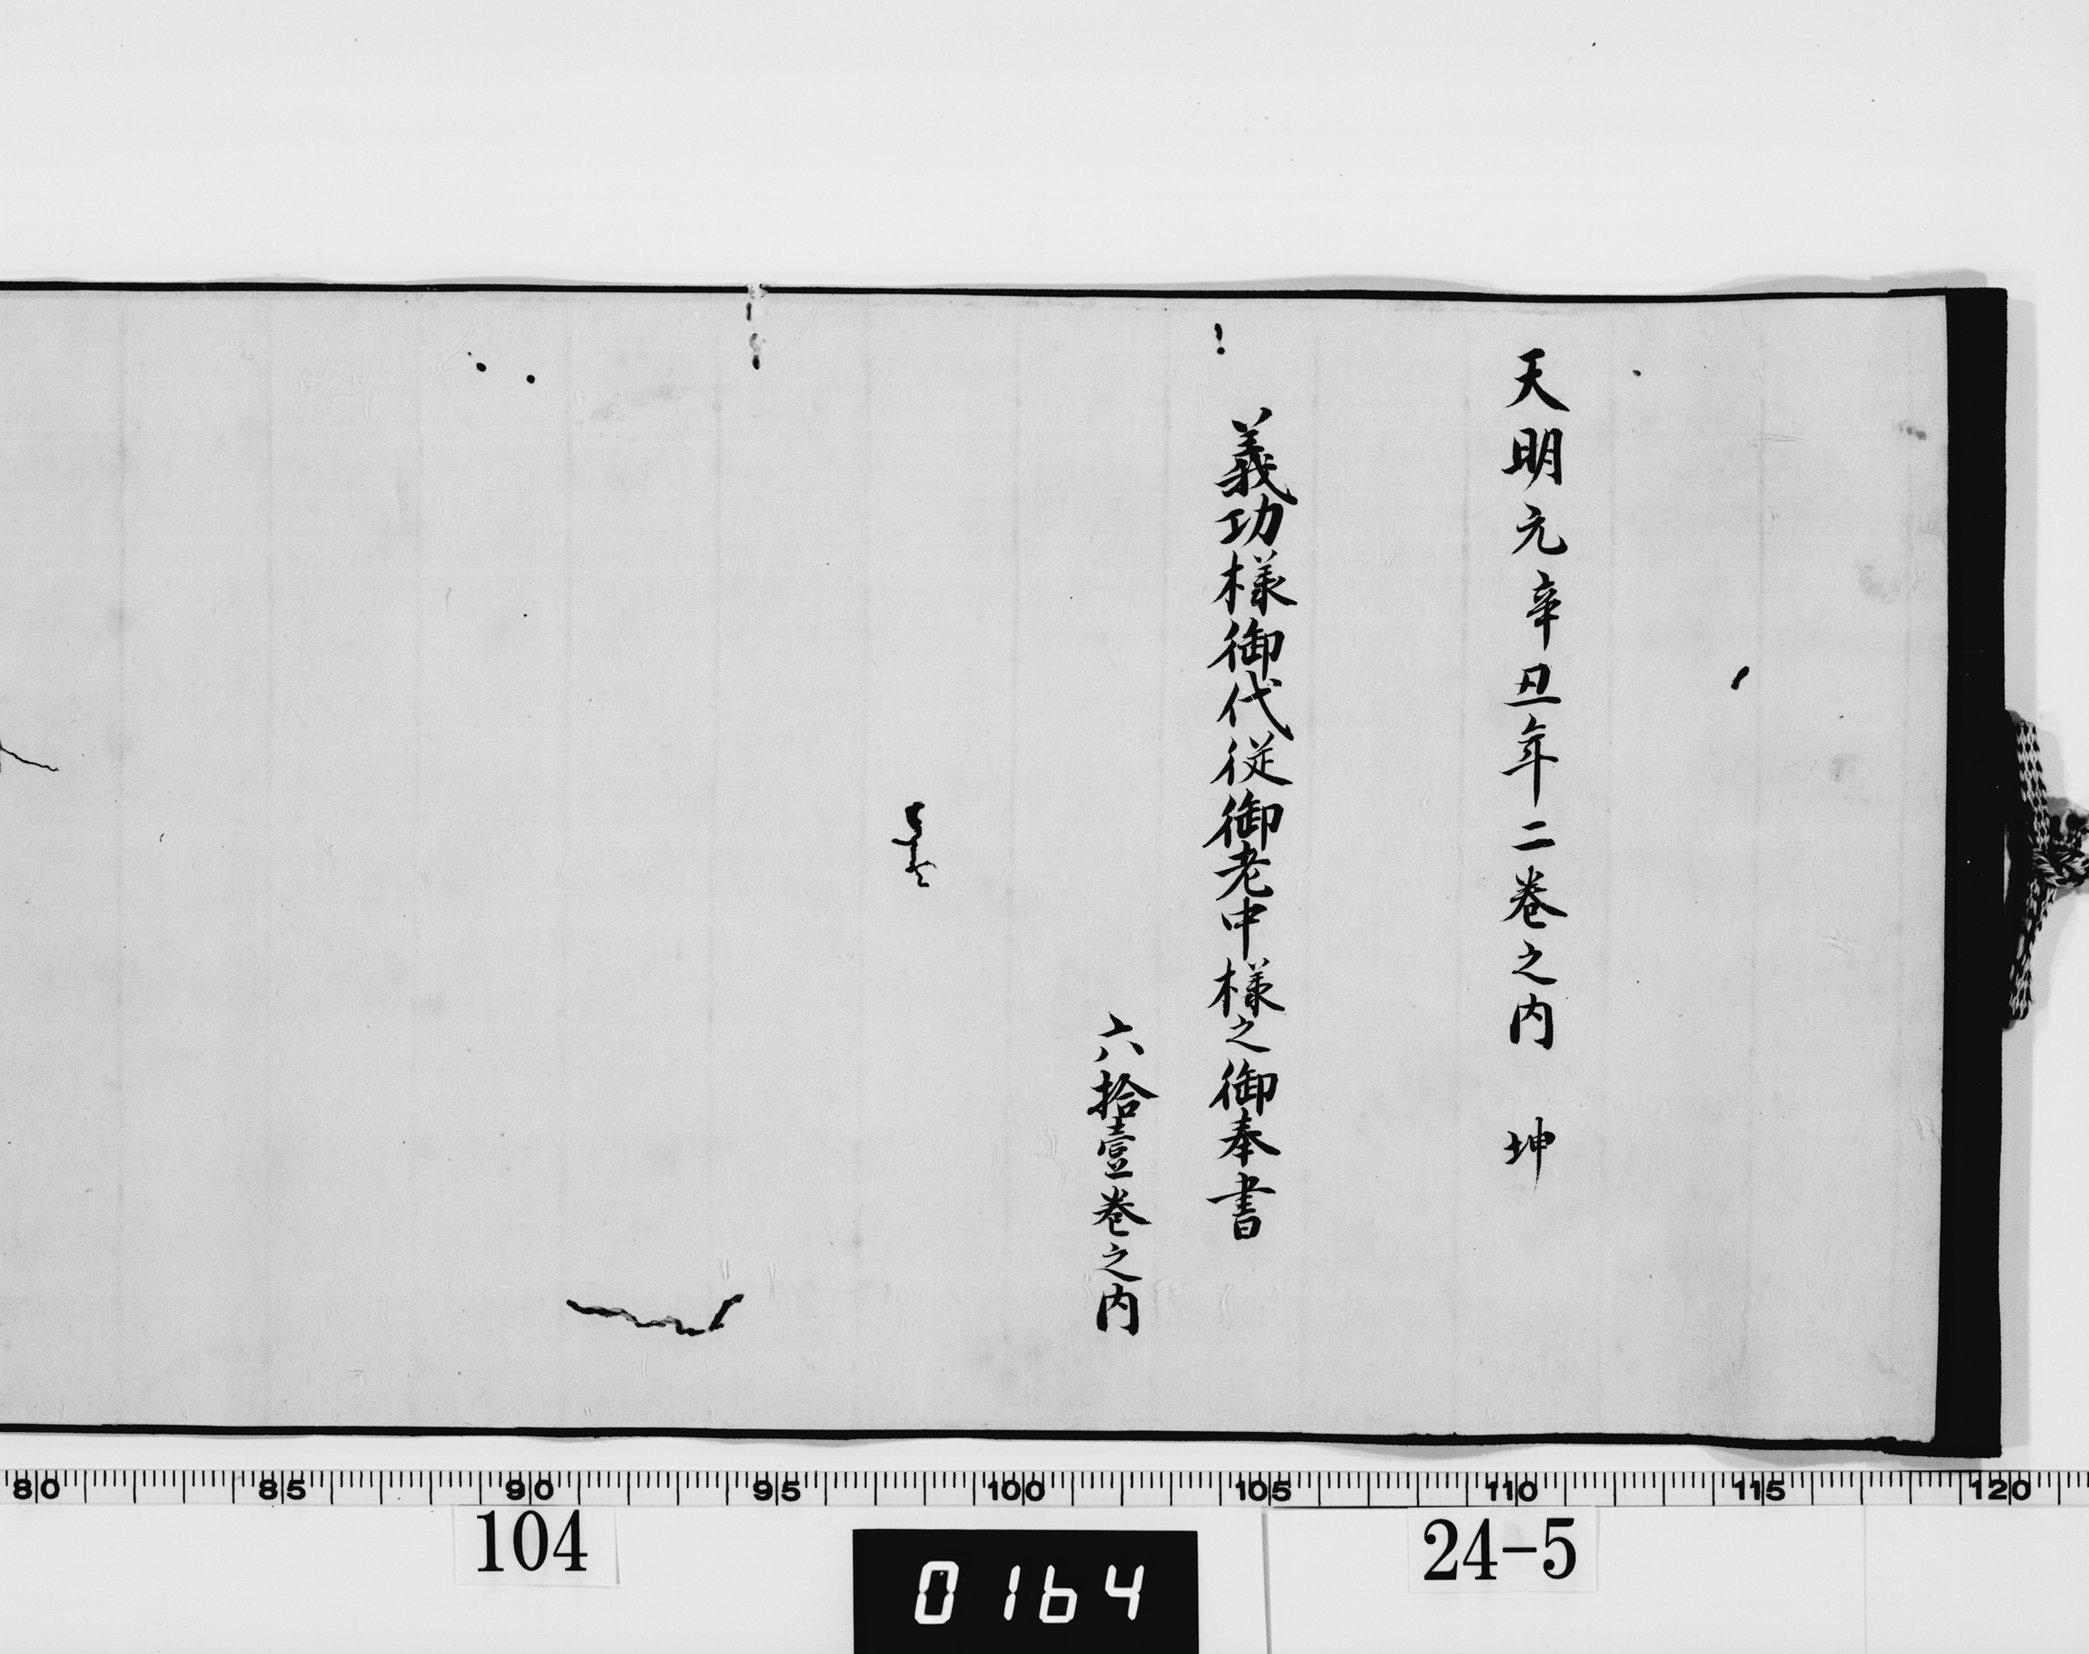 天明元辛丑年二巻之内　坤
義功様御代従御老中様之御奉書
六拾壹巻之内
80 85 90 95 100 105 110 115 120
104
0164
24-5